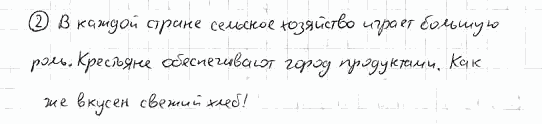 ② В каждой стране сельское хозяйство играет большую
роль. Крестьяне обеспечивают город продуктами. Как
же вкусен свежий хлеб!